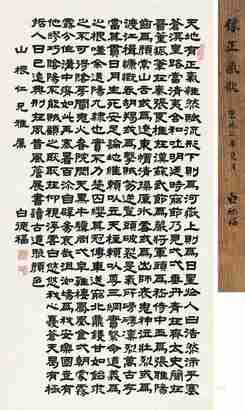 隸正氣歌
白德福
天地有正氣雜然賦流形下則為河嶽上則為日星於人曰浩然沛乎塞
蒼冥皇路當清夷含和吐明庭時窮節乃見一一垂丹青在齊太史簡在
晉董狐筆在秦張良椎在漢蘇武節為嚴將軍頭為嵇侍中血為張睢陽
齒為顏常山舌或為遼東帽清操厲冰雪或為出師表鬼神泣壯烈或為
渡江楫慷慨吞胡羯或為擊賊笏逆豎頭破裂是氣所磅礴凜烈萬古存
當其貫日月生死安足論地維賴以立天柱賴以尊三綱實繫命道義為
之根嗟余遘陽九隸也實不力楚囚纓其冠傳車送窮北鼎鑊甘如飴求
之不可得陰房闃鬼火春院閟天黑牛驥同一皁雞棲鳳凰食一朝蒙霧
露分作溝中瘠如此再寒暑百沴自辟易哀哉沮洳場為我安樂國豈有
他繆巧陰陽不能賊顧此耿耿在仰視浮雲白悠悠我心悲蒼天曷有極
哲人日已遠典刑在夙昔風簷展書讀古道照顏色
山根仁兄雅屬
白德福